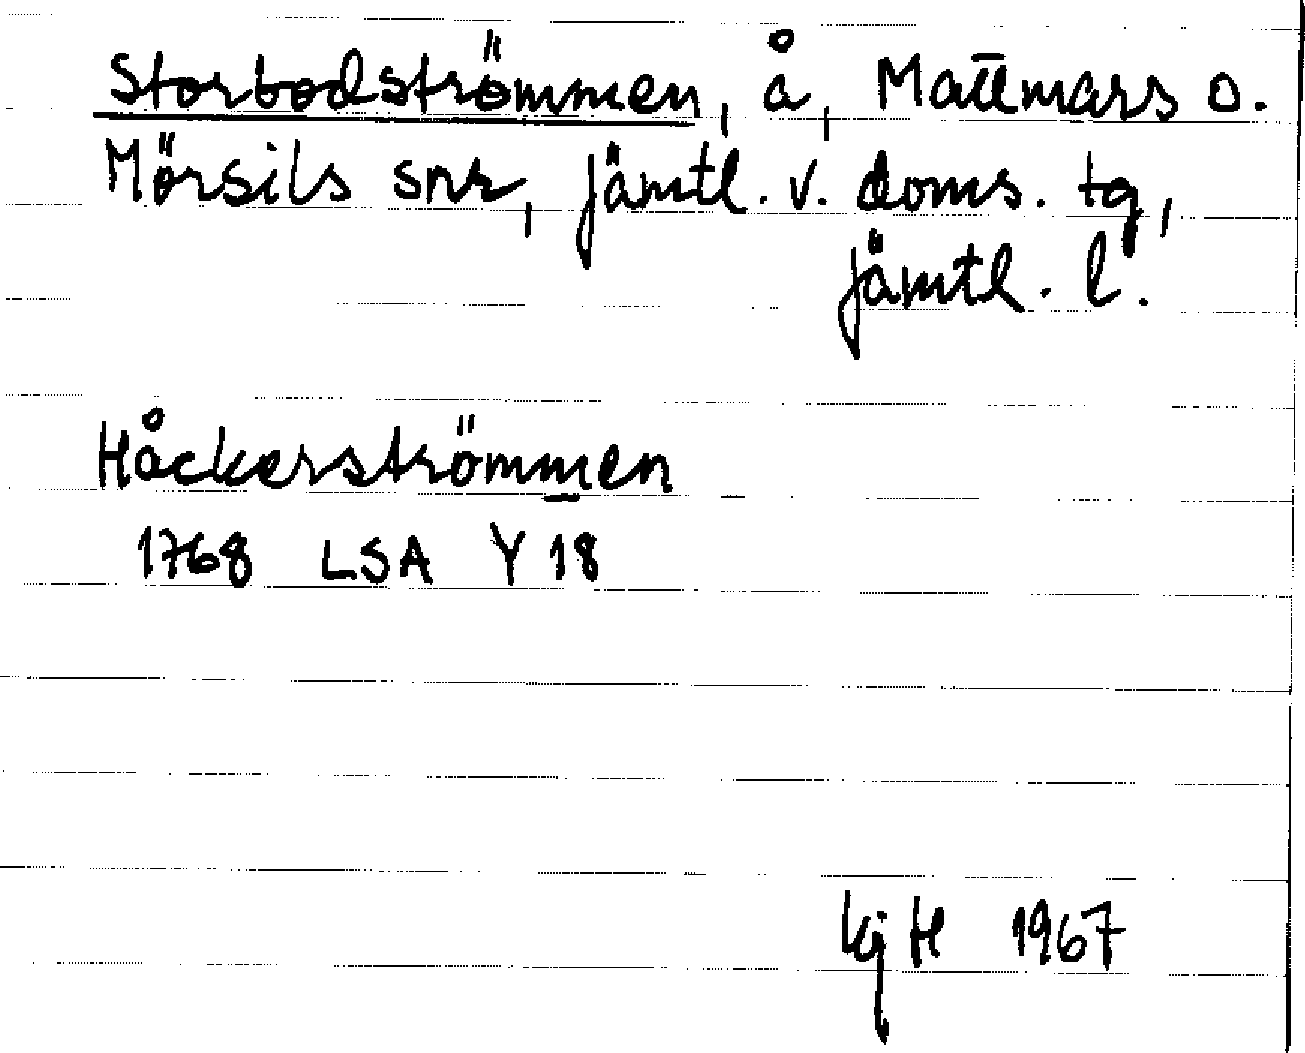 Storbodströmmen, å, Mattmars o.
Mörsils snr, Jämtl. v. doms. tg,
Jämtl. l.
Håckerströmmen
1768 LSA Y 18
Kj H 1967